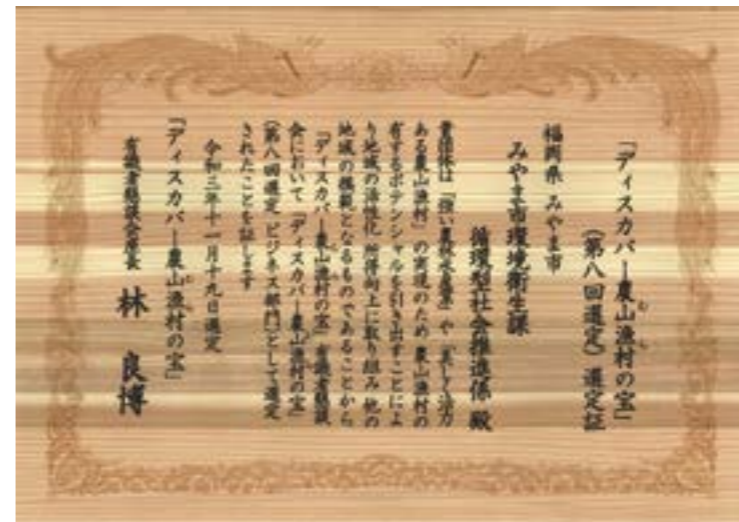 「ディスカバー農山漁村の宝」
むら
(第八回選定)選定証
福岡県 みやま市
みやま市環境衛生課
循環型社会推進係 殿
貴団体は「強い農林水産業」や「美しく活力
ある農山漁村」の実現のため 農山漁村の
有するポテンシャルを引き出すことによ
り地域の活性化 所得向上に取り組み 他の
地域の模範となるものであることから
「ディスカバー農山漁村の宝」有識者懇談
会において「ディスカバー農山漁村の宝」
(第八回選定 ビジネス部門)として選定
されたことを証します
令和三年十一月十九日選定
「ディスカバー農山漁村の宝」
有識者懇談会座長 林 良博